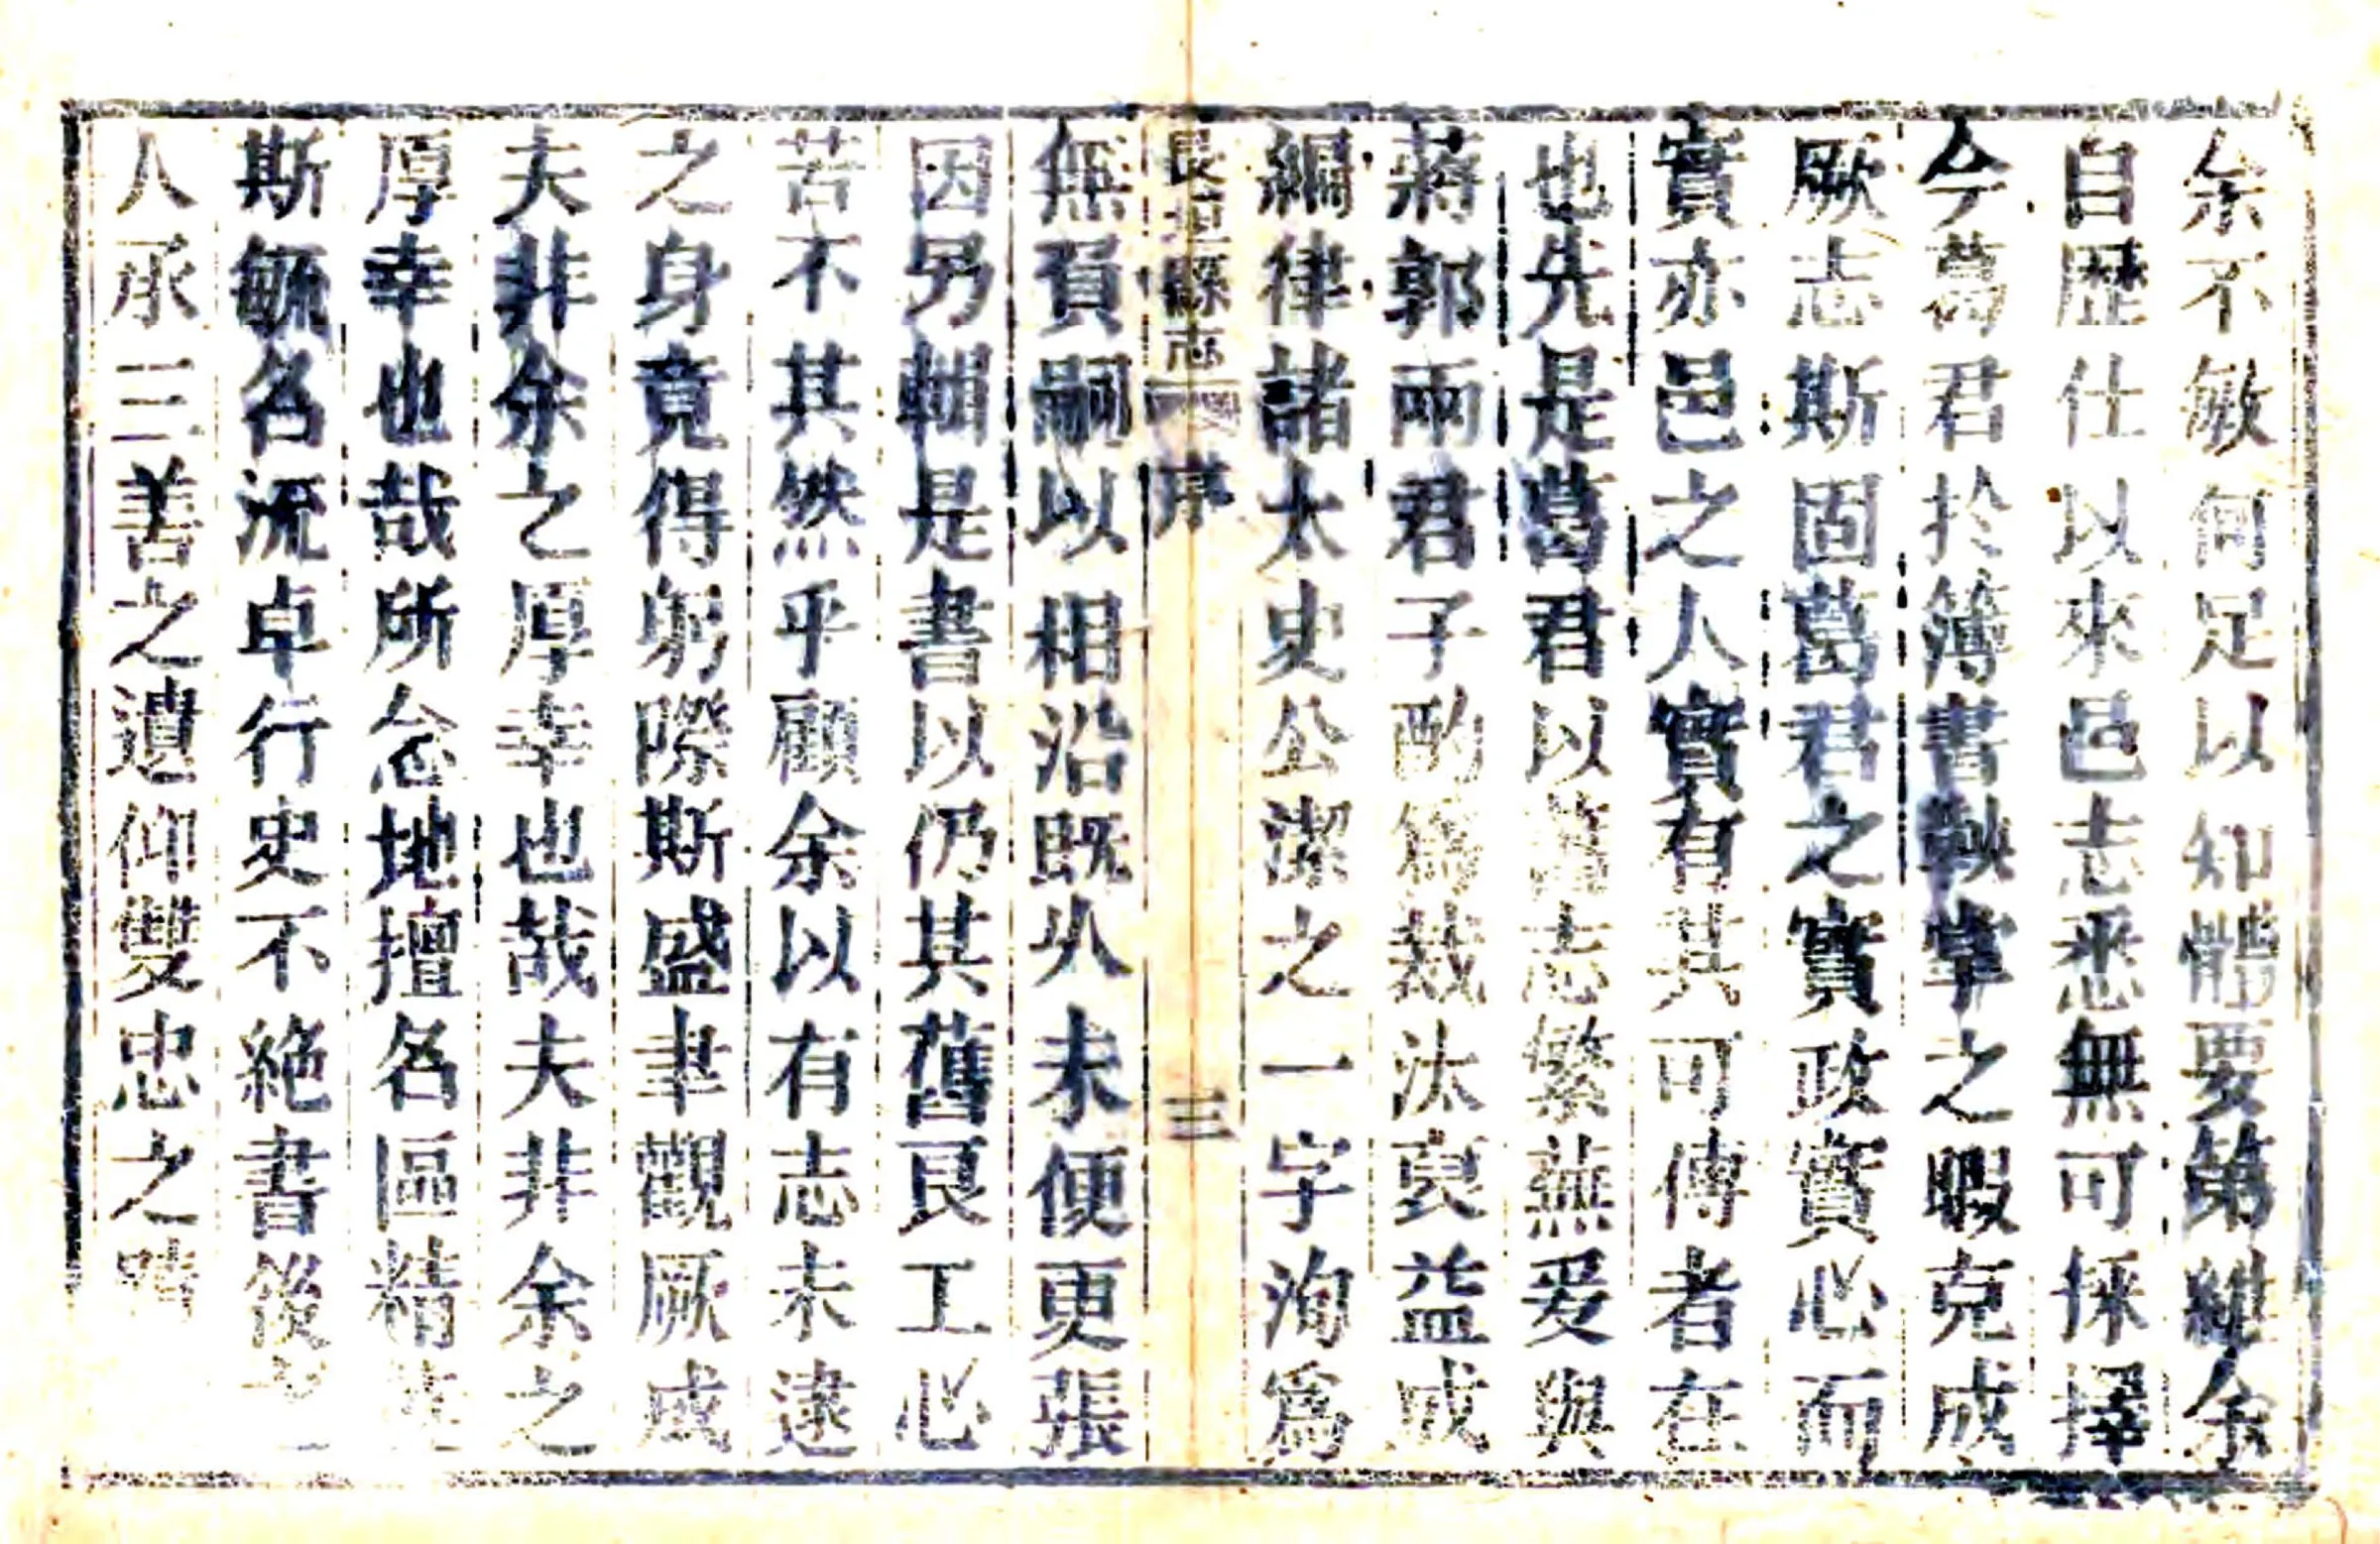 余不敏何足以知體要第繼余
自歷仕以來邑志悉無可採擇
今葛君於簿書鞅掌之暇克成
厥志斯固葛君之實政實心而
實亦邑之人實有其可傳者在
也先是葛君以舊志繁蕪爰與
蔣郭兩君子酌爲裁汰裒益咸
綱律諸太史公潔之一字洵爲
長垣縣志 序 三
無負嗣以相沿既久未便更張
因另輯是書以仍其舊良工心
苦不其然乎顧余以有志未逮
之身竟得躬際斯盛聿觀厥成
夫非余之厚幸也哉夫非余之
厚幸也哉所念地擅名區精
斯毓名流卓行史不絶書後
人承三善之遺仰雙忠之